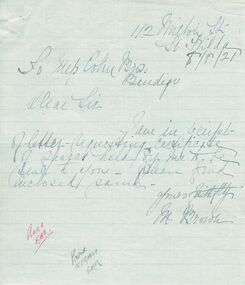 112
St Kilda
8/5/21
To Mess Cohn Bros.
Bendigo
Dear Sir
I am in receipt
of letter requesting certificate
of shares held by me to be
sent to you - Please find
enclosed same.
yours
M. Brown